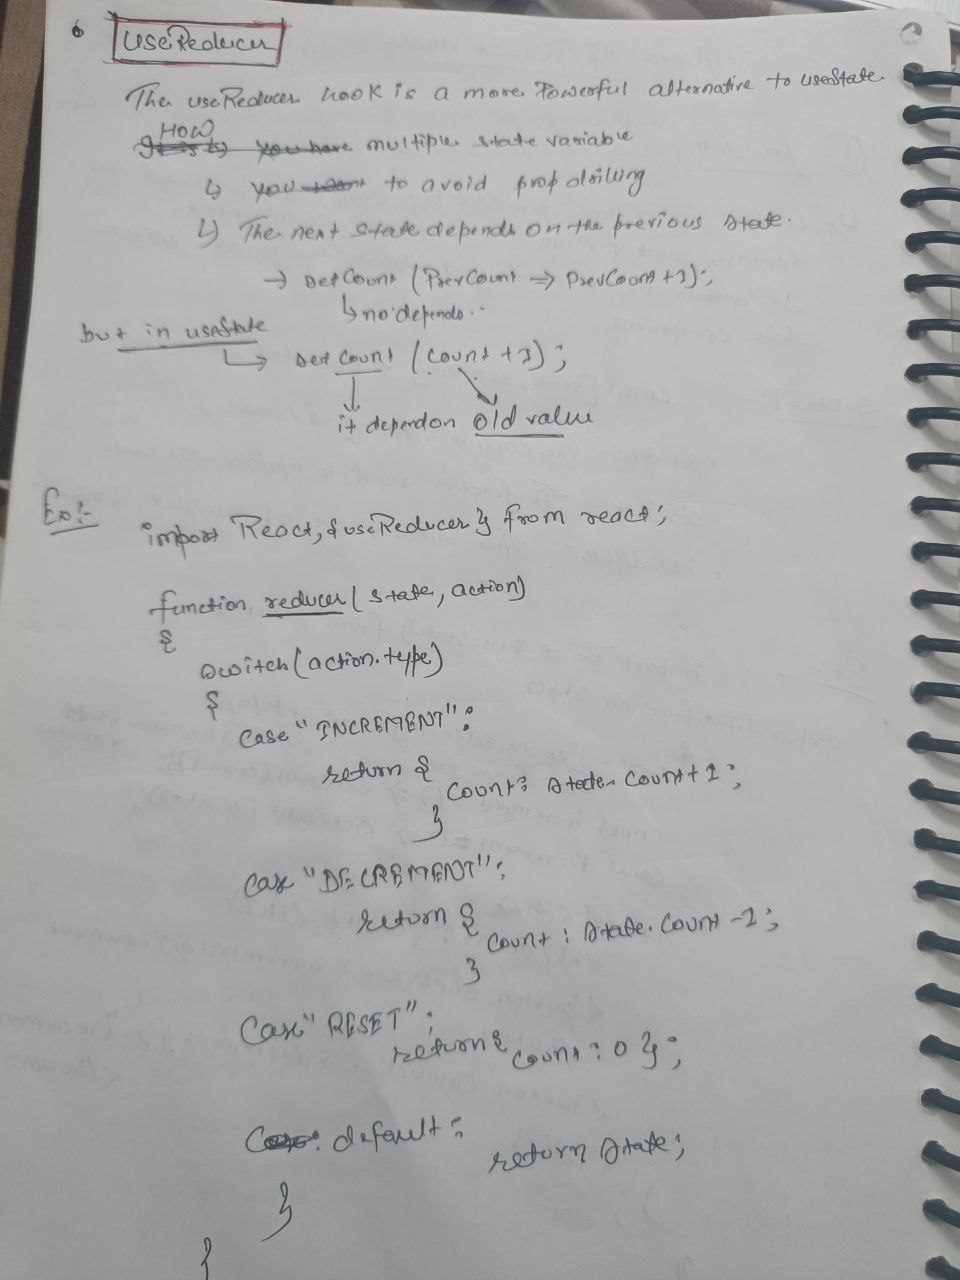 UseReducer
The useReducer hook is a more Powerful alternative to useState
HOW
you have multiple state variable
↳ you want to avoid prop driling
↳ The next state depends on the previous state.
→ Set Count (PrevCount => PrevCount +1);
↳ no depends..
but in useState
↳ Set Count (Count +1);
it dependon old value
Ex:-
import React, { useReducer } from react;
function reducer (state, action)
{
switch (action.type)
{
Case "INCREMENT":
return {
Count: state. Count + 1;
}
Case "DECREMENT":
return {
Count : state. Count -1;
}
Case "RESET":
return { Count : 0 };
default:
return state;
}
}